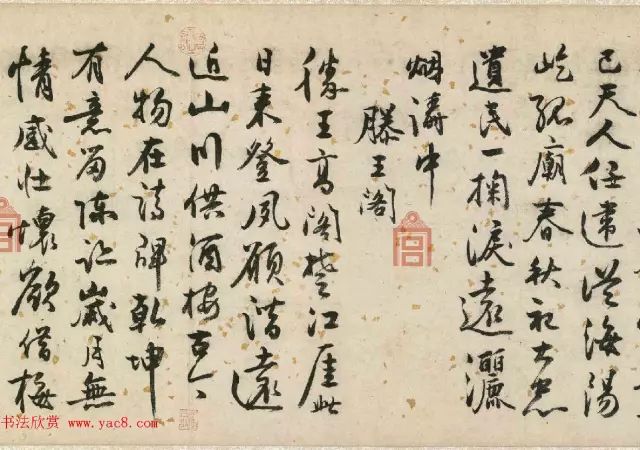 已天人任違從海陽
屹孤廟春秋祀大忠
遺民一掬淚遠灑
烟濤中
滕王閣
滕王高閣楚江厓此
日來登夙願諧遠
近山川供酒古今
人物在詩碑乾坤
有意留陳跡歲月無
情感壯懷欲借梅
书法欣赏 www.yac8.com